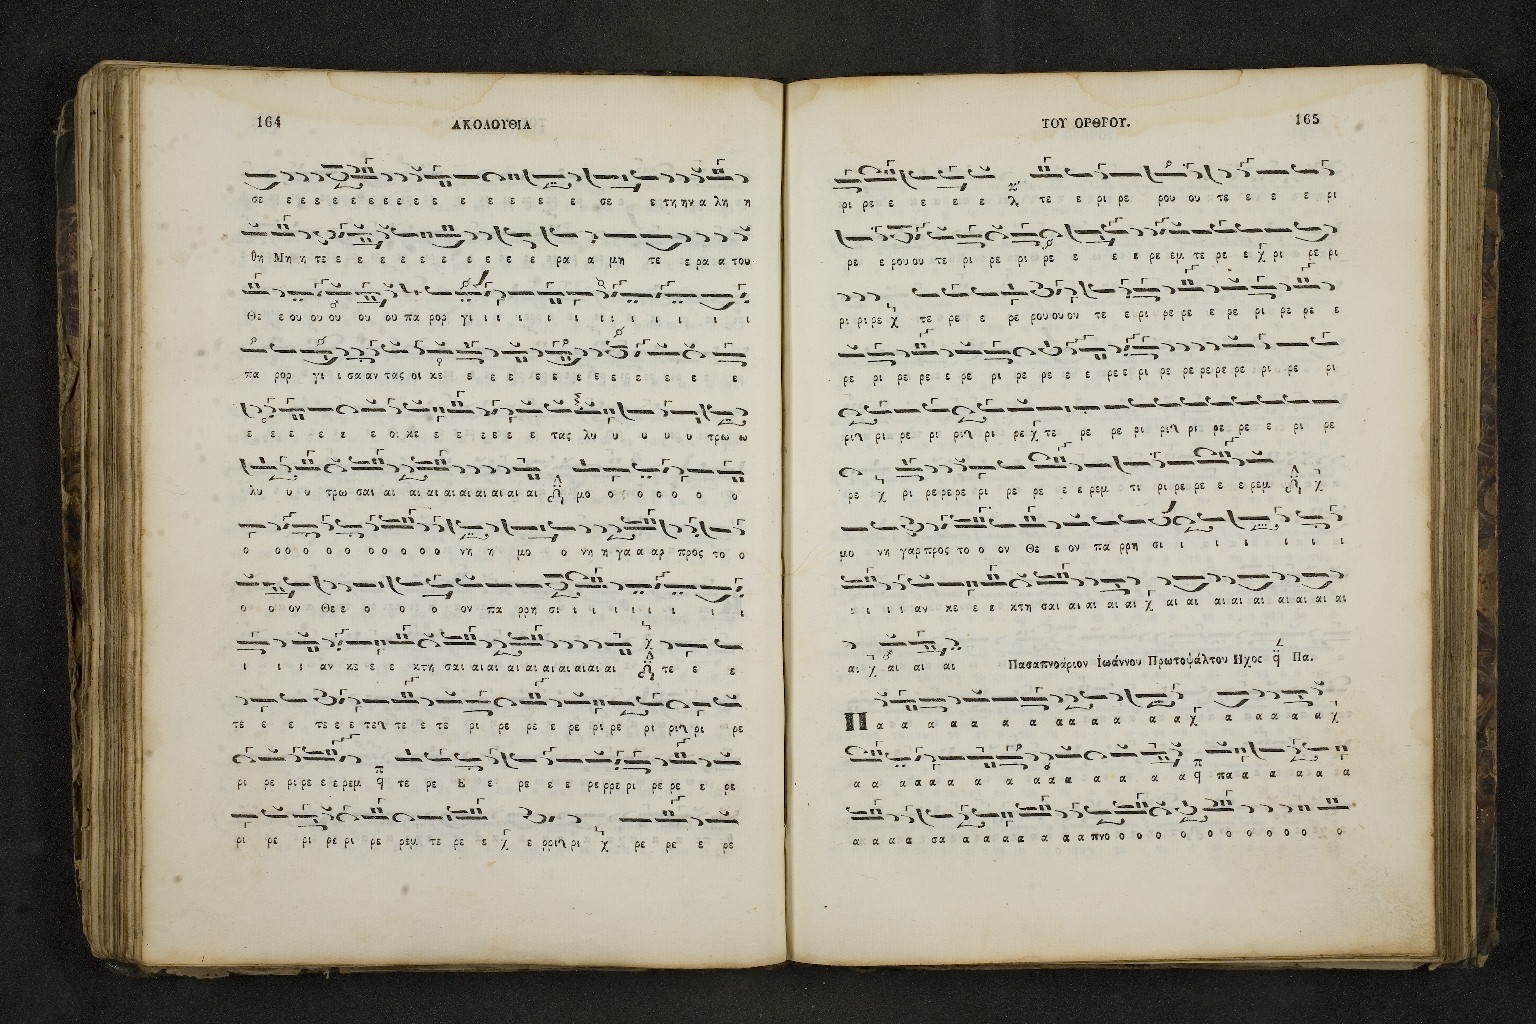 164
ΑΚΟΛΟΥΘΙΑ
σε ε ε ε ε ε ε ε ε ε ε ε ε ε ε ε σε ε τη ην α λη η
θη Μη η τε ε ε ε ε ε ε ε ε ε ε ρα α μη τε ε ρα α του
Θε ε ου ου ου ου ου πα ρορ γι ι ι ι ι ι ι ι ι ι ι ι
πα ρορ γι ι σα αν τας οι κε ε ε ε ε ε ε ε ε ε ε ε ε
ε ε ε ε ε ε ε οι κε ε ε ε ε ε ε τας λυ υ υ υ υ τρω ω
λυ υ υ τρω σαι αι αι αι αι αι αι αι αι αι μο ο ο ο ο ο ο ο
ο ο ο ο ο ο ο ο ο ο ο νη η μο ο νη η γα α αρ προς το ο
ο ο ον Θε ε ο ο ο ον πα ρρη σι ι ι ι ι ι ι ι
ι ι ι αν κε ε ε κτη σαι αι αι αι αι αι αι αι αι τε ε ε
τε ε ε τε ε ε τεϛ τε ε τε ρι ρε ρε ε ρε ρι ρε ρι ριϛ ρι ρε
ρι ρε ρι ρε ε ε ρεμ τε ρε Ε ε ρε ε ε ρε ρρε ρι ρε ρε ε ρε
ρι ρε ρι ρε ρι ρε ρεμ τε ρε ε χ ε ρριϛ ρι χ ρε ρε ε ρε
ΤΟΥ ΟΡΘΡΟΥ.
165
ρι ρε ε ε ε ε ε λ τε ε ρι ρε ρου ου τε ε ε ε ρι
ρε ε ρου ου τε ρι ρε ρι ρε ε ε ε ρε εμ τε ρε ε χ ρι ρε ρι
ρι ρι ρε χ τε ρε ε ρε ρου ου ου τε ε ρι ρε ρε ε ρε ρι ρε ρε ε
ρε ρι ρε ρε ε ρε ρι ρε ρε ε ε ρε ε ρι ρε ρε ρε ρε ρε ρι ρε ρι
ριϛ ρι ρε ρι ριϛ ρι ρε χ τε ρε ρε ρι ριϛ ρι ρε ρε ε ρι ρε
ρε χ ρι ρε ρε ρε ρι ρε ρε ε ε ρεμ τι ρι ρε ρε ε ε ρεμ χ
μο νη γαρ προς το ο ον Θε ε ον πα ρρη σι ι ι ι ι ι ι
ι ι ι ι αν κε ε ε κτη σαι αι αι αι αι χ αι αι αι αι αι αι αι αι αι
αι χ αι αι αι Πασαπνοάριον Ἰωάννου Πρωτοψάλτου Ηχος q̈ Πα.
Π α α α α α α α α α α α α α α χ α α α α α χ
α α α α α α α α α α α α α α q πα α α α α α
α α α α σα α α α α α α α πνο ο ο ο ο ο ο ο ο ο ο ο